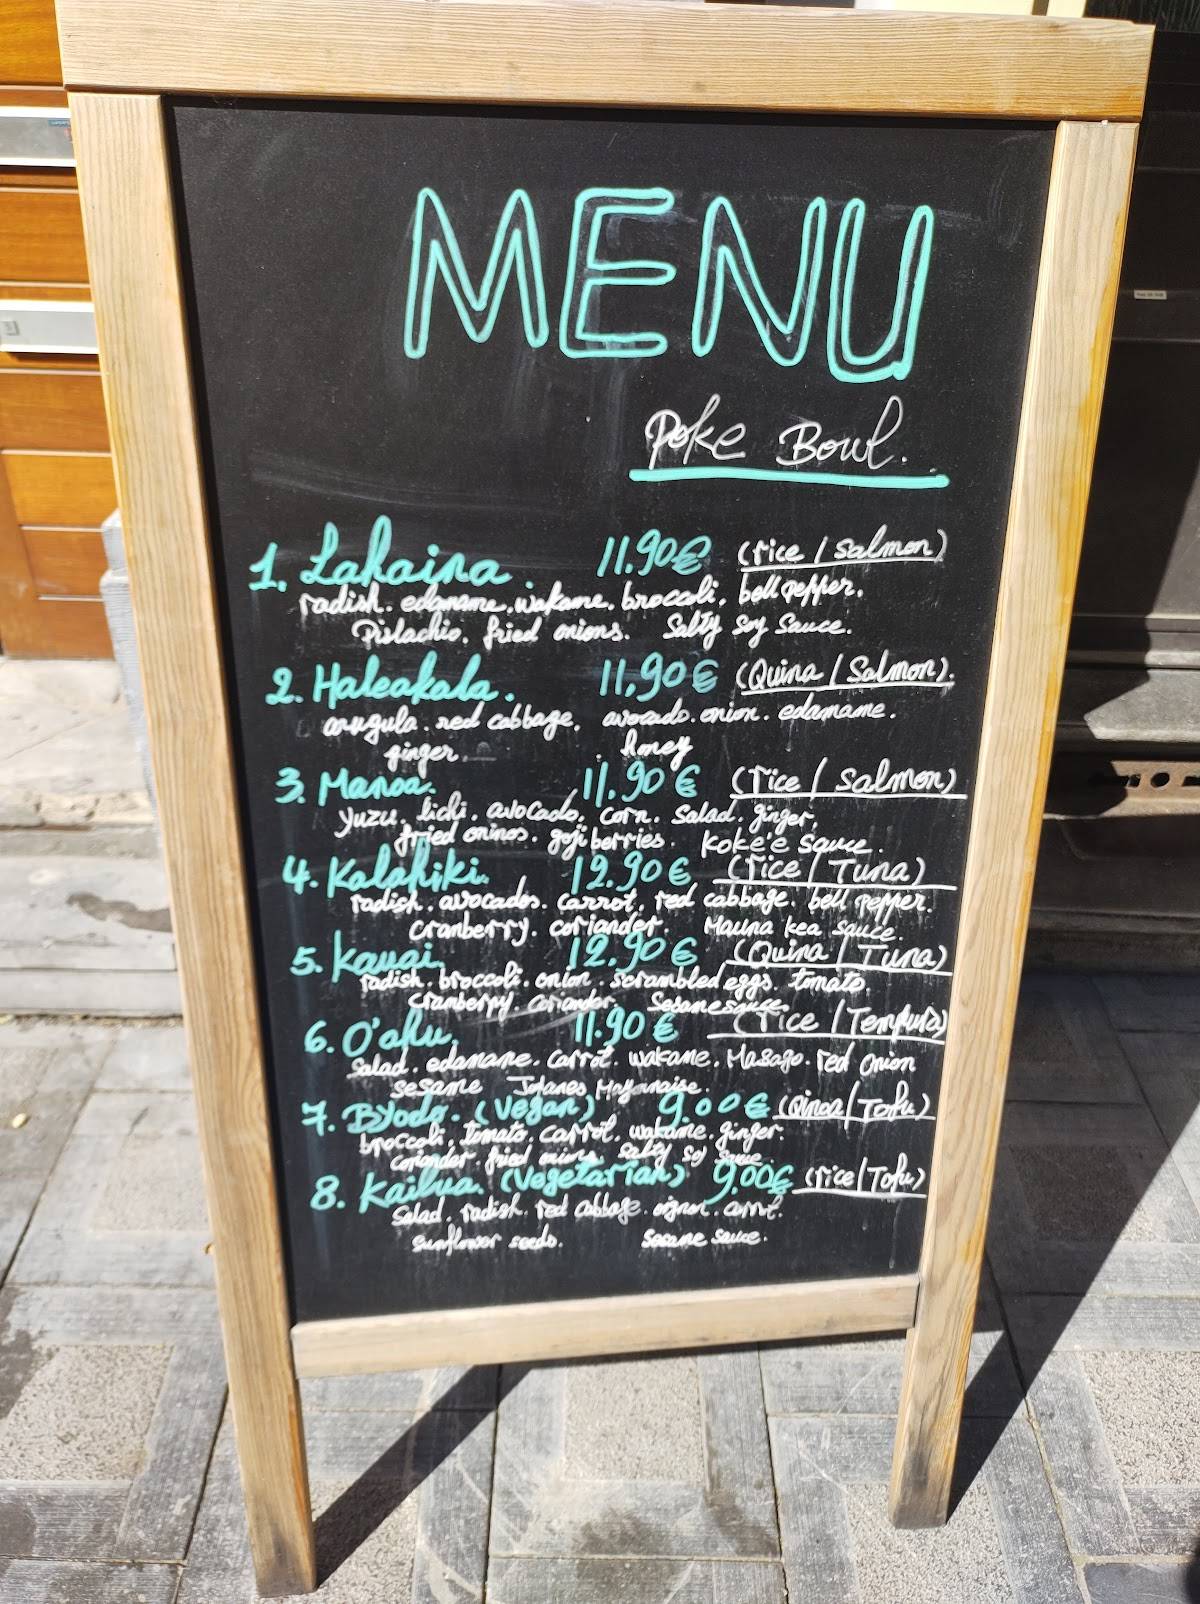 MENU
Poke Bowl.
1. Lahaina. 11.90€ (rice / Salmon)
radish. edamame. wakame. broccoli. bell pepper.
Pistachio. fried onions. Salty Soy Sauce.
2. Haleakala. 11,90€ (Quina / Salmon).
arugula. red cabbage. avocado. onion. edamame.
ginger. honey
3. Manoa. 11.90€ (rice / Salmon)
Yuzu. lichi. avocado. corn. Salad. ginger.
fried oninos. goji berries. Koke'e Sauce.
4. Kalahiki. 12.90€ (rice / Tuna)
radish. avocados. carrot. red cabbage. bell pepper.
cranberry. coriander. Mauna kea sauce.
5. Kauai. 12.90€ (Quina / Tuna)
radish. broccoli. onion. scrambled eggs. tomato.
cranberry. coriander. Sesame sauce.
6. O'ahu. 11.90€ (rice / Tempura)
Salad. edamame. carrot. wakame. Masago. red onion
sesame Mayonnaise.
7. Byodo. (Vegan) 9.00€ (Qinoa / Tofu)
broccoli. tomato. carrot. wakame. ginger.
coriander. fried onins. Salty Soy Sauce.
8. Kailua. (Vegetarian) 9.00€ (rice / Tofu)
Salad. radish. red cabbage. carrot.
Sunflower seeds. Sesame Sauce.